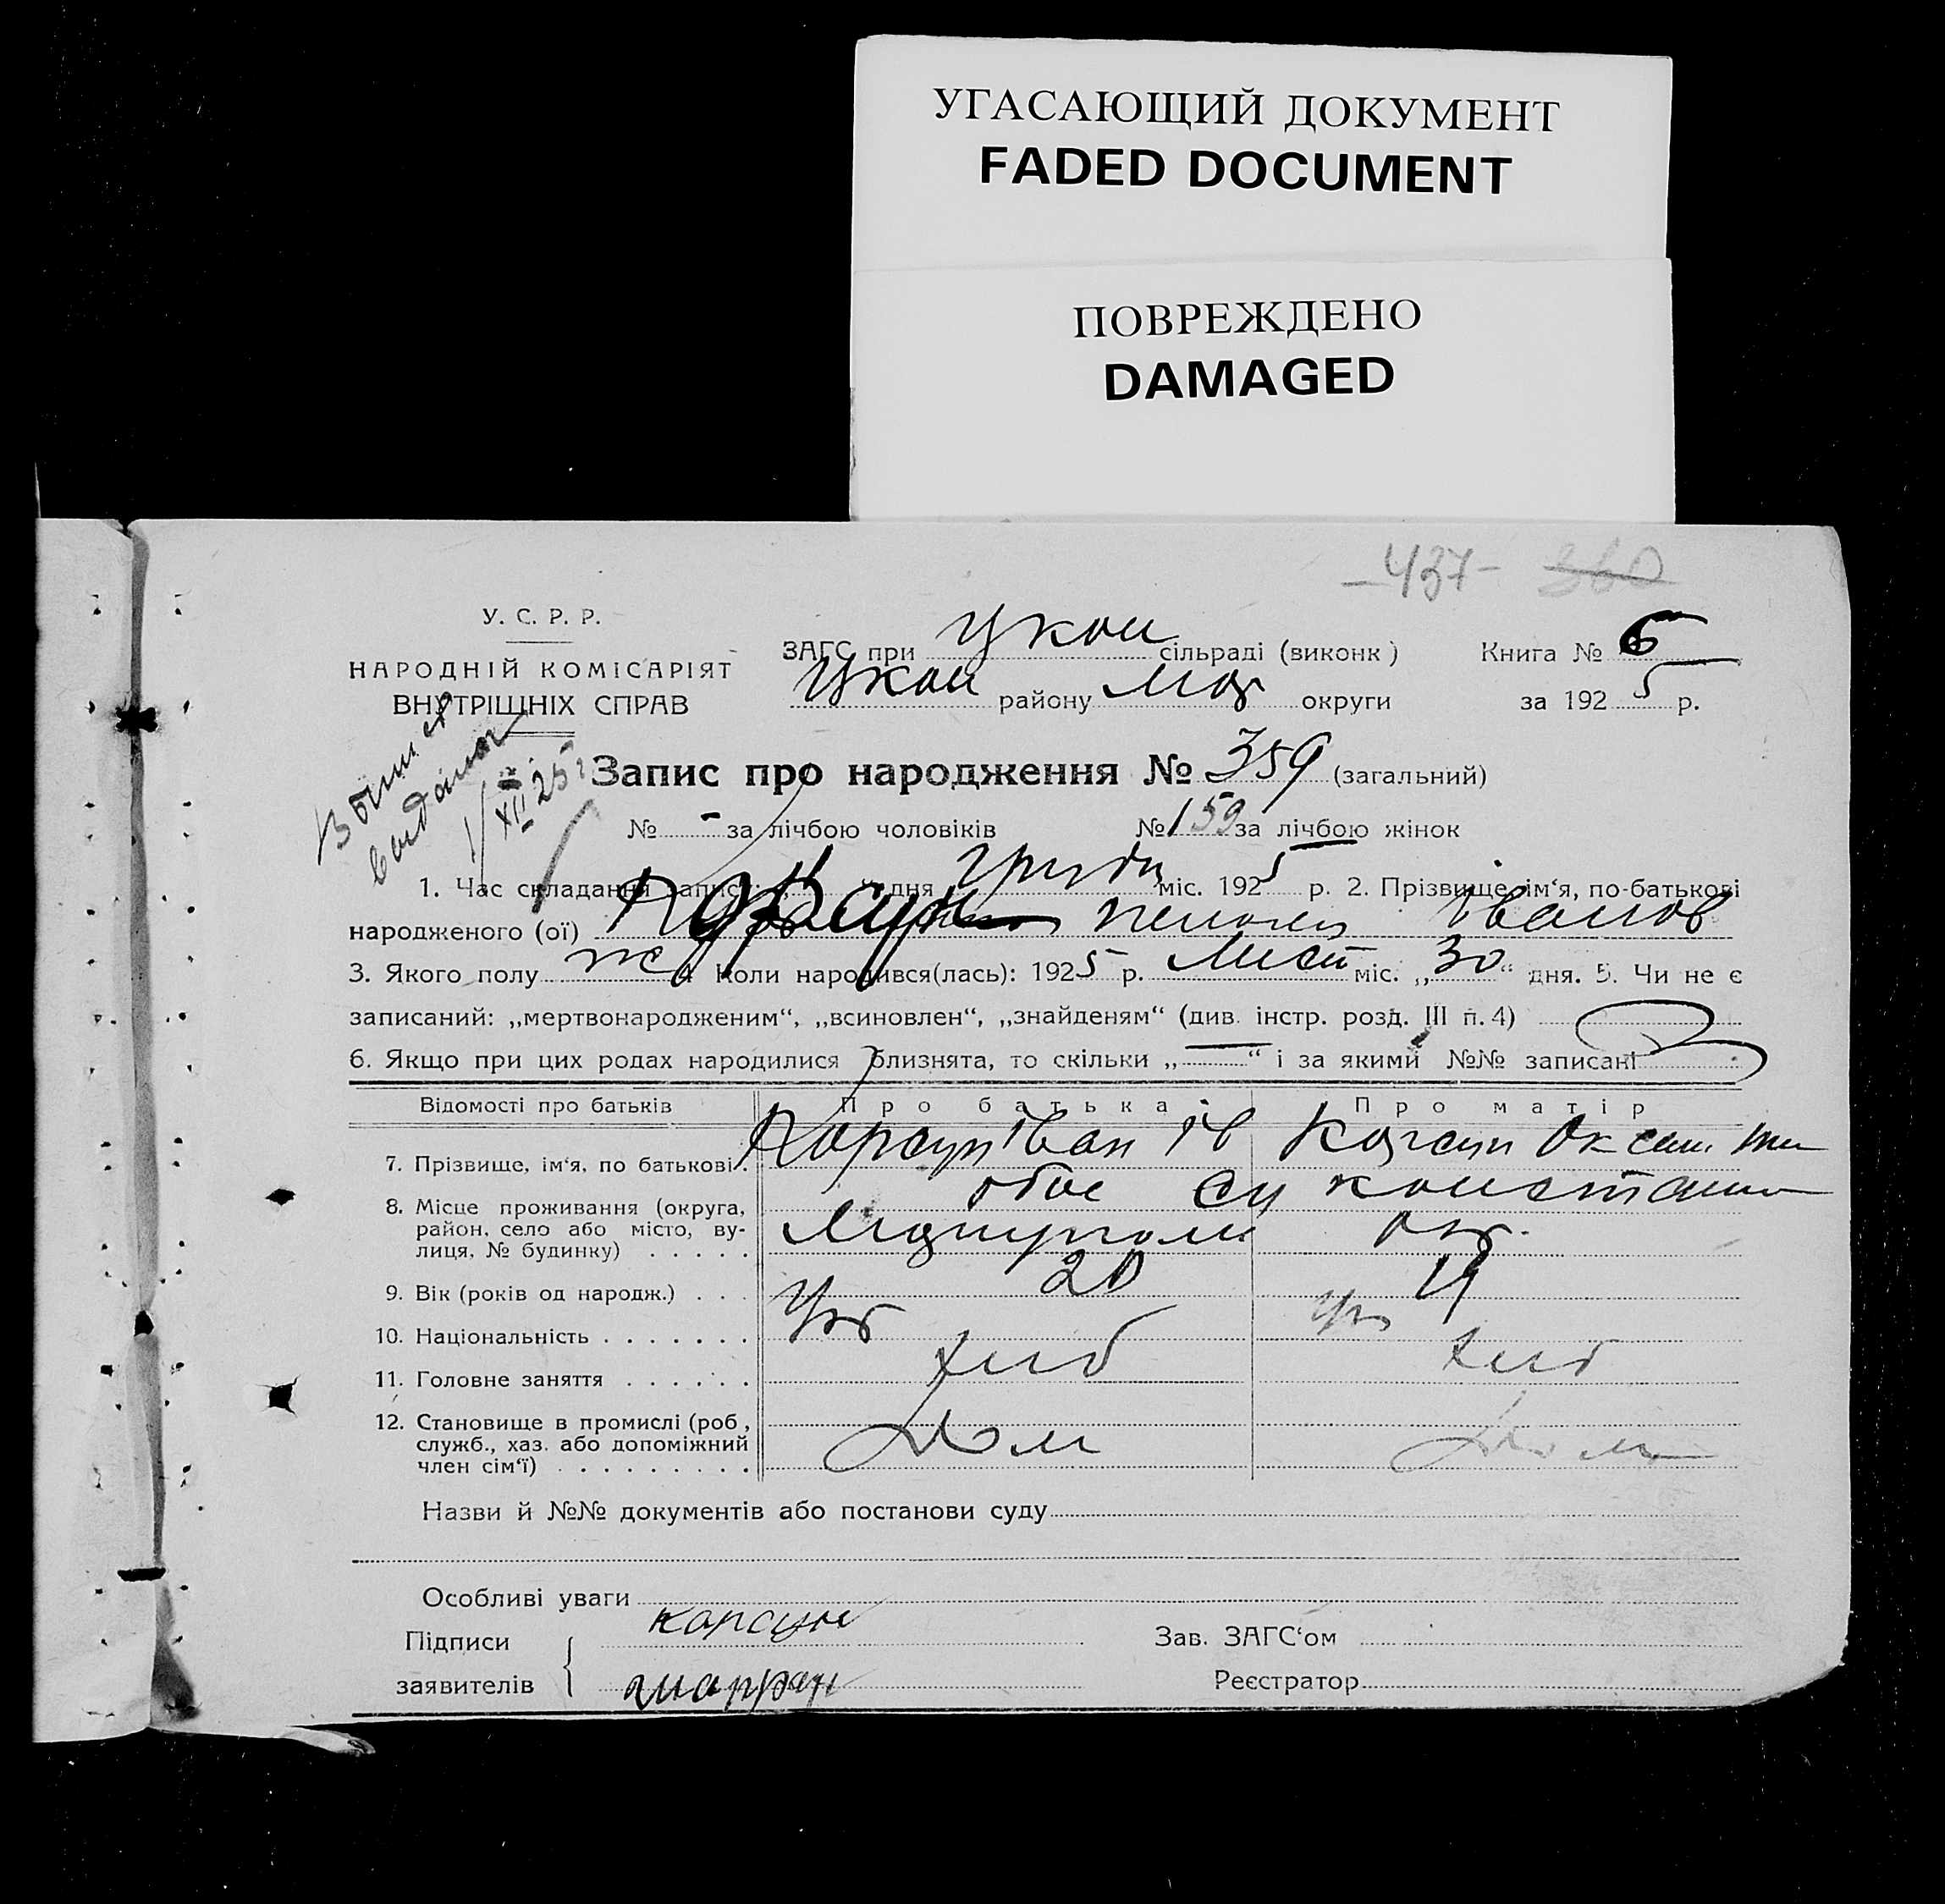 УГАСАЮЩИЙ ДОКУМЕНТ
FADED DOCUMENT
ПОВРЕЖДЕНО
DAMAGED
-437- 360
У. С. Р. Р.
НАРОДНІЙ КОМІСАРІЯТ
ВНУТРІШНІХ СПРАВ
ЗАГС при сільраді (виконк) Книга № 6
району Мар округи за 1925 р.
XII 25
Запис про народження № 359 (загальний)
№ - за лічбою чоловіків № 159 за лічбою жінок
1. Час складання запису: дня грудн міс. 1925 р. 2. Прізвище, ім‘я, по-батькові
народженого (ої) Корсун Іванов
3. Якого полу ж 4 Коли народився(лась): 1925 р. Лист міс. „30“ дня. 5. Чи не є
записаний: „мертвонародженим“, „всиновлен“, „знайденям“ (див. інстр. розд. III п. 4)
6. Якщо при цих родах народилися близнята, то скільки „—“ і за якими №№ записані
Відомості про батьків Про батька Про матір
7. Прізвище, ім‘я, по батькові . Корсун Іван Ів Корсун Оксан
обое
8. Місце проживання (округа, район, село або місто, вулиця, № будинку) . . . . . Маріупол окр.
9. Вік (років од народж.) . . . 20 19
10. Національність . . . . . . . Укр Укр
11. Головне заняття . . . . . . хліб хліб
12. Становище в промислі (роб, служб., хаз. або допоміжний член сім‘ї) . . . . . . . . .
Назви й №№ документів або постанови суду
Особливі уваги
Підписи корсун Зав. ЗАГС‘ом
заявителів Реєстратор